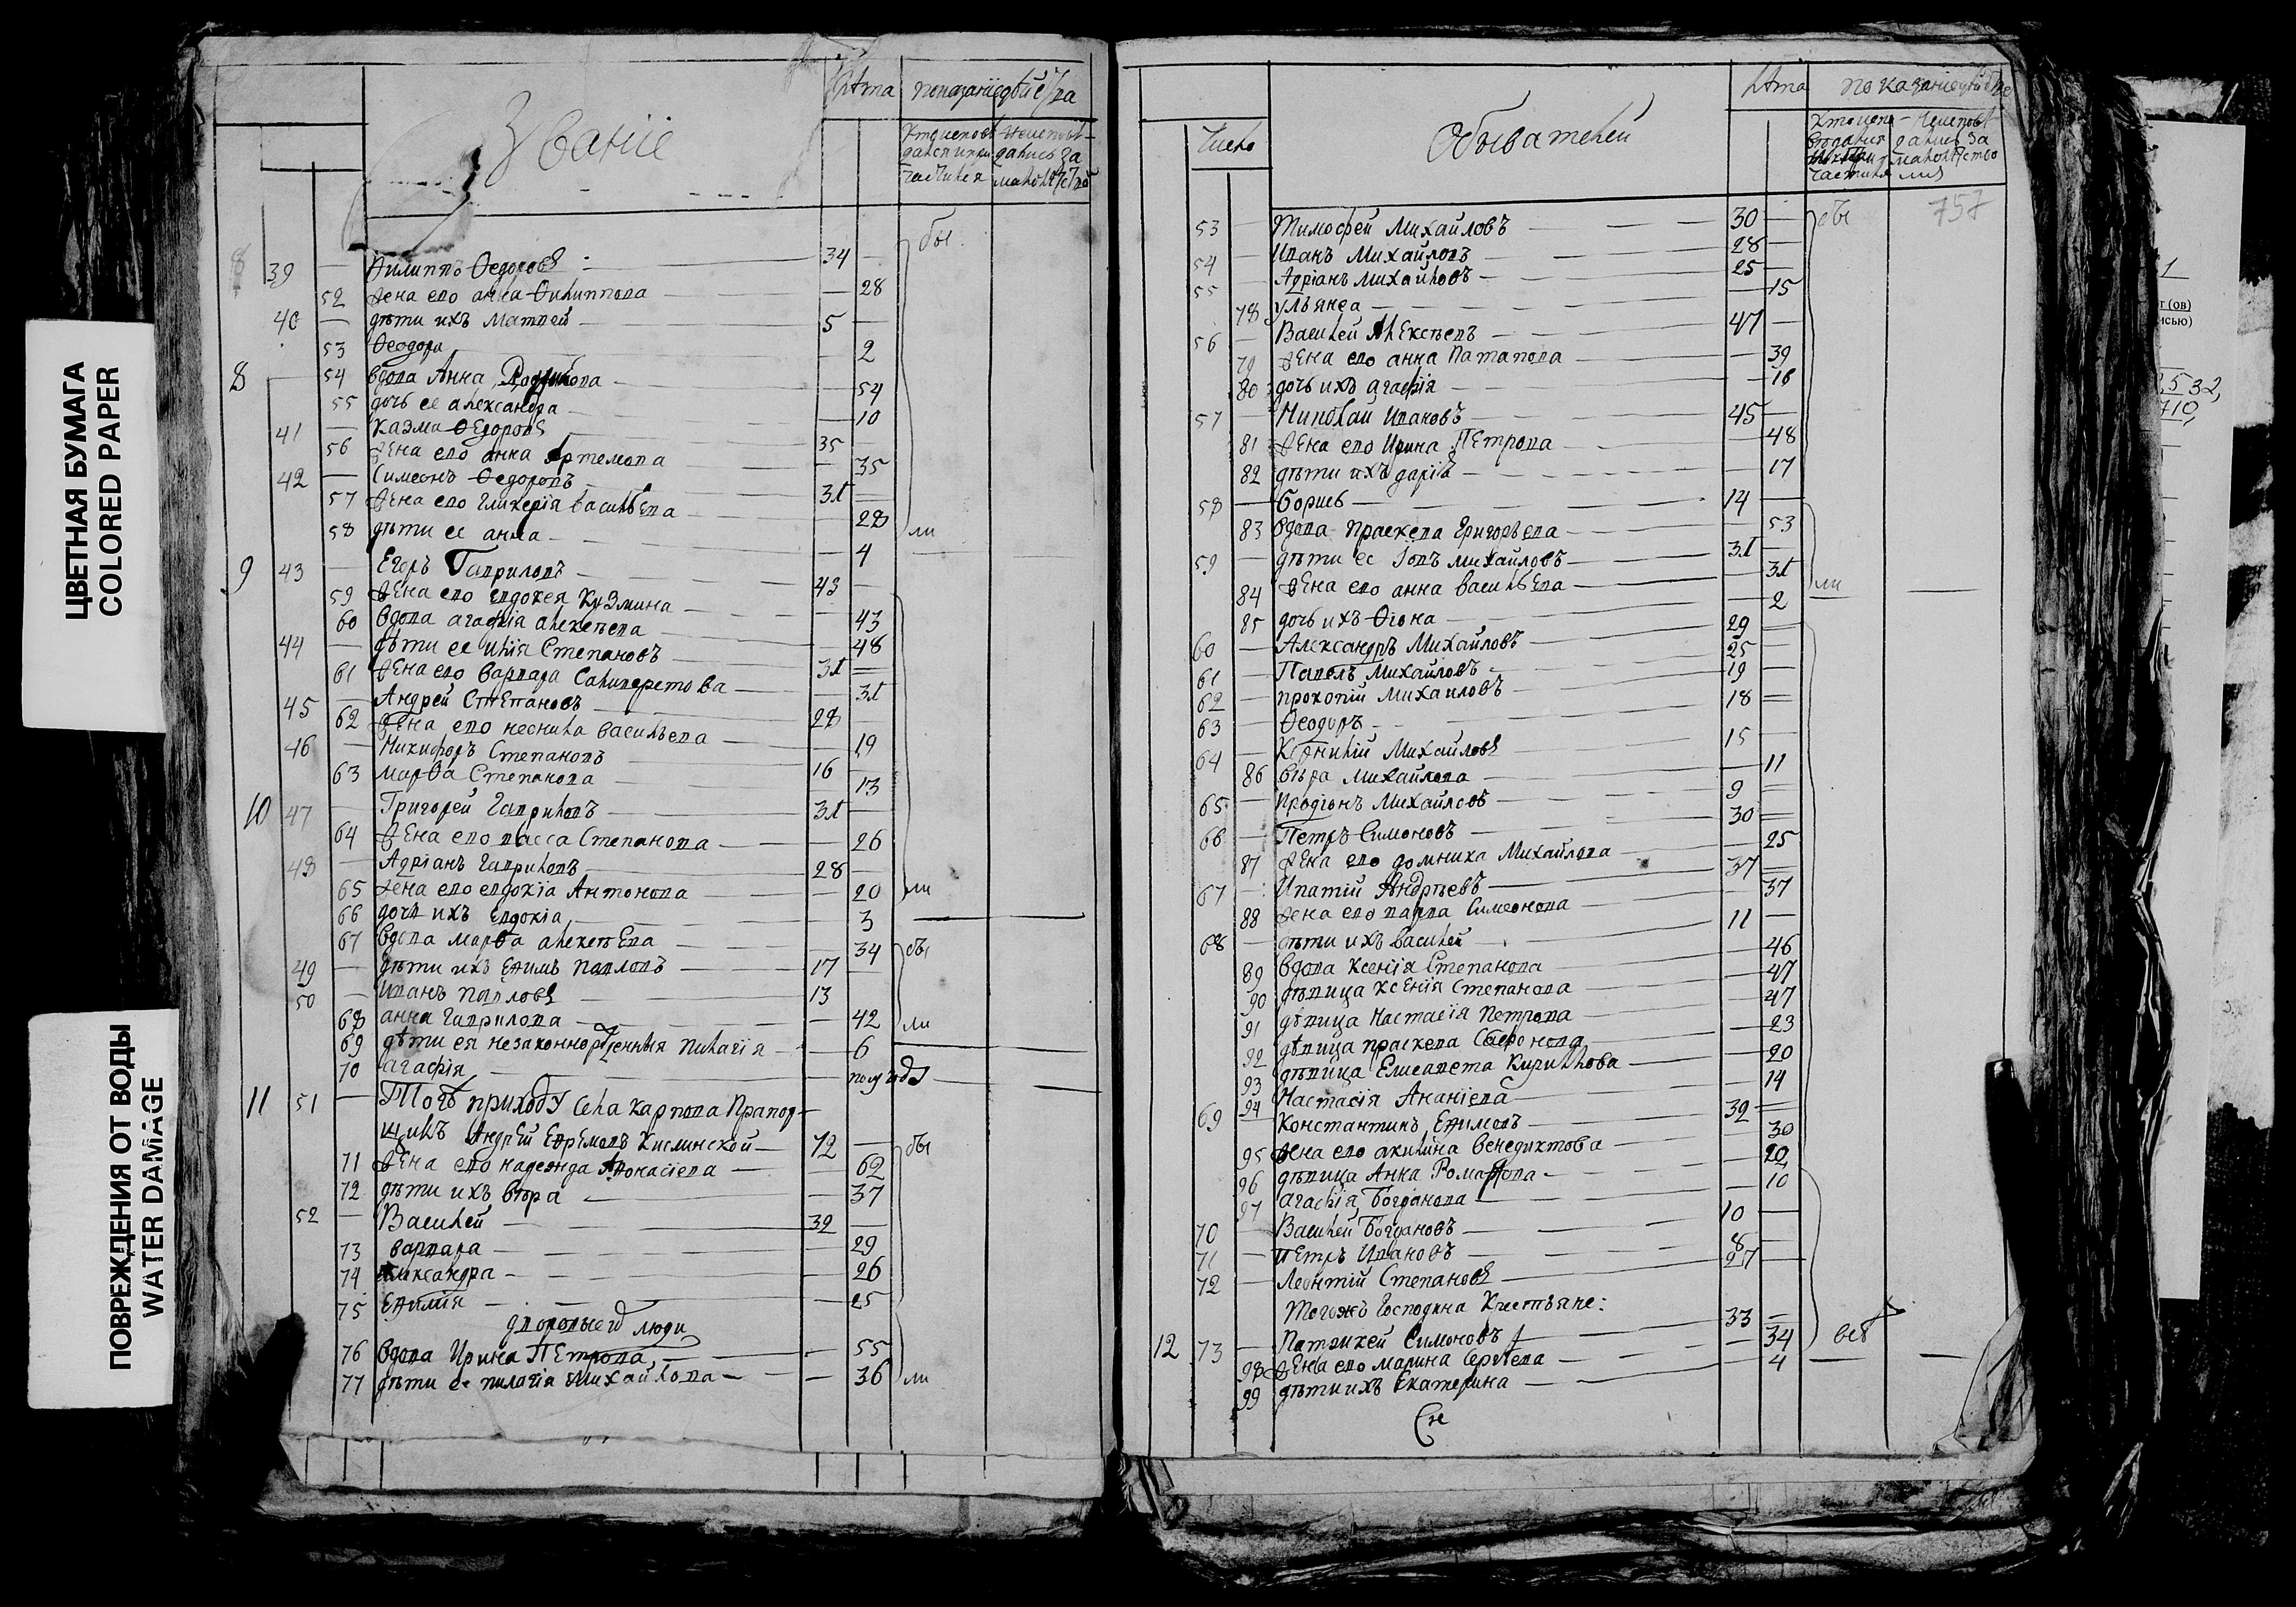 ЦВЕТНАЯ БУМАГА
COLORED PAPER
ПОВРЕЖДЕНИЯ ОТ ВОДЫ
WATER DAMAGE
Званіе
Лѣта
8 39 — Филиппъ Ѳедоровъ — 34 —
бы
52 жена ево анна Филиппова — 28
40 — дѣти ихъ Матвей — 5 —
53 Ѳеодора — 2
8 54 вдова Анна — 54
55 дочь ее александра — 10
41 — Казма Ѳедоровъ — 35
56 жена ево анна Артемова — 35
42 — Симеонъ Ѳедоровъ — 31
57 жена ево гликерія васильева — 28
58 дѣти ее анна — 4
ли
9 43 — Егоръ Гавриловъ — 43
59 жена ево евдокея Кузмина — 43
60 вдова агафія алексѣева — 48
44 — дѣти ее илія Степановъ — 31
61 жена ево варвара — 31
45 — Андрей Степановъ — 28
62 жена ево васильева — 19
46 — Никифоръ Степановъ — 16
63 марѳа Степанова — 13
10 47 — Григорей Гавриловъ — 31
64 жена ево васса Степанова — 26
48 — Адріанъ Гавриловъ — 28
65 жена ево евдокіа Антонова — 20
ли
66 дочь ихъ Евдокіа — 3
67 вдова марѳа алексѣева — 34
бы
49 — дѣти ихъ Ефимъ Павловъ — 17
50 — Иванъ Павловъ — 13
68 анна Гаврилова — 42
ли
69 дѣти ея незаконнорожденныя Пилагія — 6
70 агафія — полгода
11 51 — Тогожъ приходу села карпова Прапор-
щикъ Андрей Ефремовъ Кислинской — 72
бы
71 жена ево надежда Афонасіева — 62
72 дѣти ихъ вѣра — 37
52 — Василей — 32
73 варвара — 29
74 александра — 26
75 Ефимія — 25
дворовые люди
76 вдова Ирина Петрова — 55
77 дѣти ее пилагія Михайлова — 36
ли
Число
Обывателей
Лѣта
757
53 — Тимофей Михайловъ — 30 —
бы
54 — Иванъ Михайловъ — 28
55 — Адріанъ Михайловъ — 25
78 ульянеа — 15
56 — Василей Алексѣевъ — 47
79 жена ево анна Патапова — 39
80 дочь ихъ агафія — 16
57 — Николай Ивановъ — 45
81 жена ево Ирина Петрова — 48
82 дѣти ихъ дарія — 17
58 — Борисъ — 14
83 вдова Прасковья Григорьева — 53
59 — дѣти ее Іовъ Михайловъ — 31
84 жена ево анна васильева — 31
ли
85 дочь ихъ Ѳіона — 2
60 — Александръ Михайловъ — 29
61 — Павелъ Михайловъ — 25
62 — прокопій Михаиловъ — 19
63 — Ѳеодоръ — 18
64 — Михайловъ — 15
86 вѣра Михайлова — 11
65 — Иродіонъ Михайловъ — 9
66 — Петръ Симоновъ — 30
87 жена ево домника Михайлова — 25
67 — Ипатій Андрѣевъ — 37
88 жена ево Симеонова — 37
68 — дѣти ихъ василей — 11
89 вдова Ксенія Степанова — 46
90 дѣвица ксенія Степанова — 47
91 дѣвица Настасія Петрова — 47
92 дѣвица праскева Сафонова — 23
93 дѣвица Елисавета Кирилова — 20
94 Настасія Ананіева — 14
69 — Константинъ Ефимовъ — 32
95 жена ево акилина Венедиктова — 30
96 дѣвица Анна Романова — 20
97 агафія Богданова — 10
70 Василей Богдановъ — 10
71 — Петръ Ивановъ — 8
72 — Леонтій Степановъ — 27
Тогожъ Господина Крестьяне:
12 73 — Патрикей Симоновъ — 33
98 жена ево марина Сергѣева — 34
всѣ
99 дѣти ихъ Екатерина — 4